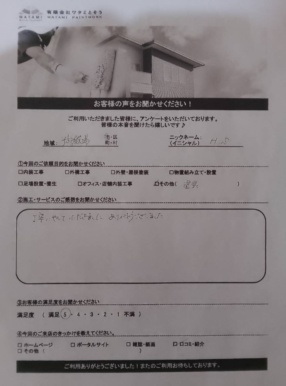 有限会社ワタミとそう
WATAMI PAINTWORK
お客様の声をお聞かせください！
ご利用いただきました皆様に、アンケートをいただいております。
皆様の本音を聞けたら嬉しいです♪
地域： 市・区 町・村 ニックネーム： (イニシャル)
①今回のご依頼目的をお聞かせください
□内装工事 □外構工事 □外壁・屋根塗装 □物置組み立て・設置
□足場設置・養生 □オフィス・店舗内装工事 ☑その他（
②施工・サービスのご感想をお聞かせください
③お客様の満足度をお聞かせください
満足度 （ 満足 5 ・ 4 ・ 3 ・ 2 ・ 1 不満 ）
④今回のご来店のきっかけを教えてください。
□ ホームページ □ ポータルサイト □ 雑誌・新聞 □ 口コミ・紹介
□ その他（ ）
ご利用ありがとうございました！またのご利用お待ちしております。